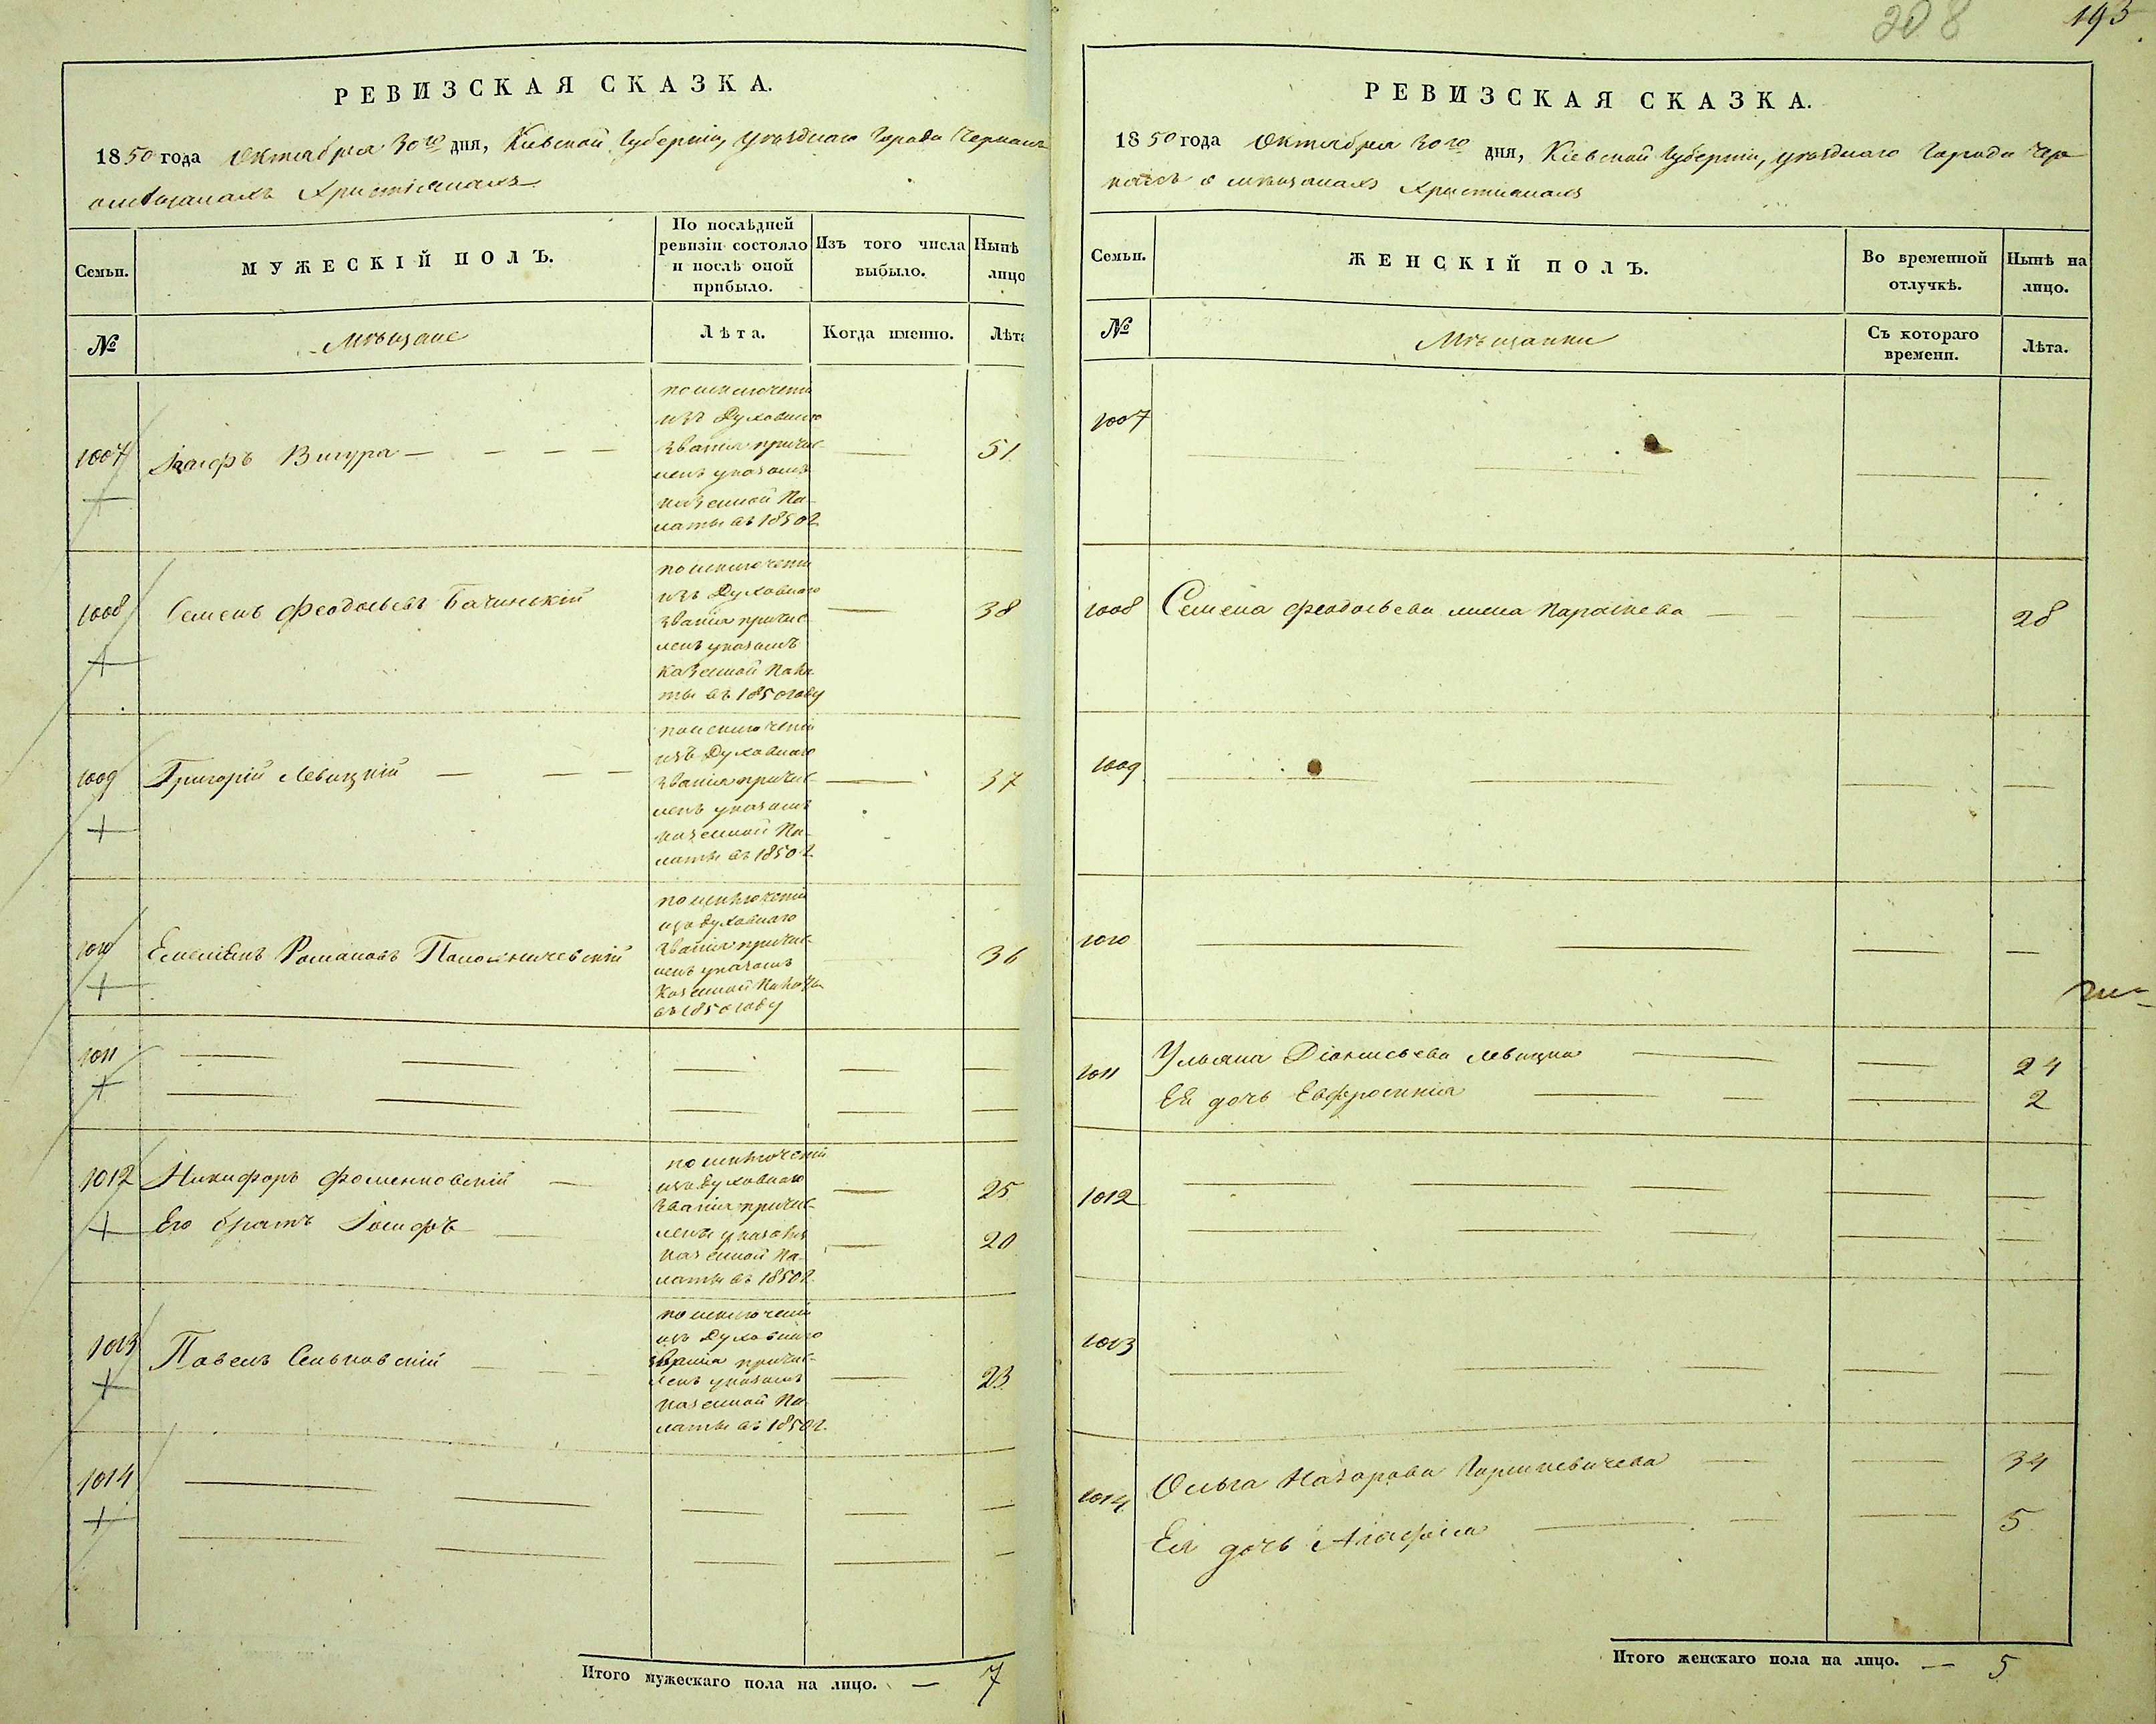 208 193
РЕВИЗСКАЯ СКАЗКА.
1850 года Октября 30го дня, Кіевской Губерніи, уѣзднаго Города Черкасъ
о мѣщанахъ Христіанахъ
Семьи. МУЖЕСКІЙ ПОЛЪ. По послѣдней ревизіи состояло и послѣ оной прибыло. Изъ того числа выбыло. Нынѣ лицо
№ Мѣщане Лѣта. Когда именно. Лѣта
1007 Іосифъ Вигура — — — — — 51
по исключеніи
изъ Духовнаго
званія причис-
ленъ указомъ
казенной Па-
латы въ 1850 г.
1008 Семенъ Феодосьевъ Бачинскій — 38
по исключеніи
изъ Духовнаго
званія причис
ленъ указомъ
Казенной Пала
ты въ 1850 году
1009 Григорій Левицкій — — — — 37
по исключеніи
изъ Духовнаго
званія причис-
ленъ указомъ
казенной Па-
латы въ 1850 г.
1010 Романовъ 36
по исключеніи
изъ духовнаго
званія причис-
ленъ указомъ
Казенной Палаты
въ 1850 году
1011 — — — — —
— — — — —
1012 Никифоръ Фоменковскій — — 25
Его братъ Іосифъ — — 20
по исключеніи
изъ духовнаго
званія причис-
лены указомъ
казенной Па-
латы въ 1850 г.
1013 Павелъ Сеньковскій — — — 23
по исключеніи
изъ Духовнаго
званія причис-
ленъ указомъ
казенной Па
латы въ 1850 г.
1014 — — — — —
— — — — —
Итого мужескаго пола на лицо. — 7
РЕВИЗСКАЯ СКАЗКА.
1850 года Октября 30го дня, Кіевской Губерніи, уѣзднаго Города Чер
касъ о мѣщанахъ Христианахъ
Семьи. ЖЕНСКІЙ ПОЛЪ. Во временной отлучкѣ. Нынѣ на лицо.
№ Мѣщанки Съ котораго времени. Лѣта.
1007 — — — —
1008 Семена Феодосьева жена Параскева — — — 28
1009 — — — —
1010 — — — —
1011 Ульяна Діонисьева Левицка — — 24
Ея дочь Евфросинія — — — 2
1012 — — — — —
— — — — —
1013 — — — — —
1014 Ольга Назарова — — 34
Ея дочь Агафія — — — 5
Итого женскаго пола на лицо. — 5